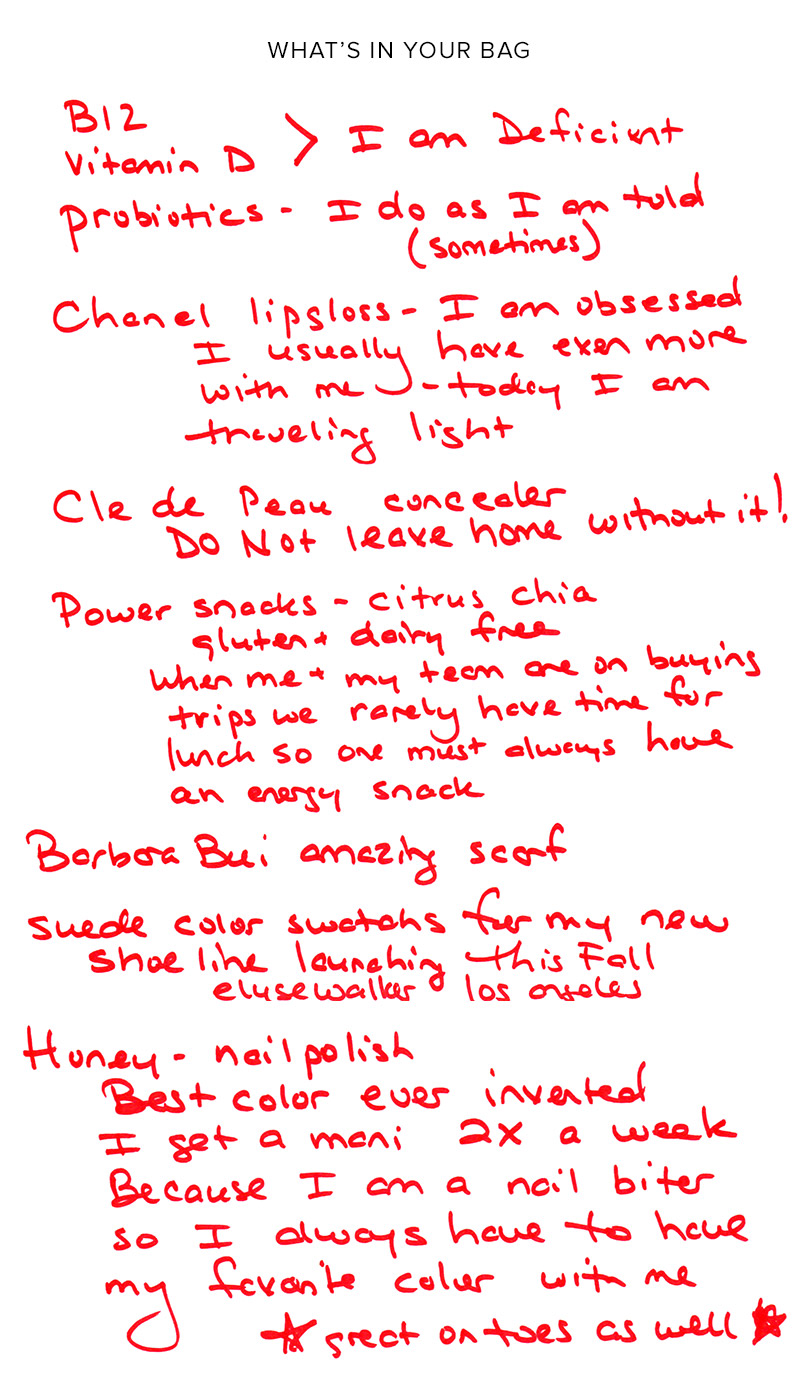 WHAT'S IN YOUR BAG
B12
Vitamin D > I am Deficient
Probiotics - I do as I am told
(sometimes)
Chanel lipgloss - I am obsessed
I usually have even more
with me - today I am
traveling light
Cle de Peau concealer
DO NOT leave home without it!
Power snacks - citrus chia
gluten + dairy free
when me + my team are on buying
trips we rarely have time for
lunch so one must always have
an energy snack
Barbara Bui amazing scarf
suede color swatchs for my new
shoe line launching this Fall
elysewalker los angeles
Honey - nail polish
Best color ever invented
I get a mani 2x a week
Because I am a nail biter
so I always have to have
my favorite color with me
☆ great on toes as well ★